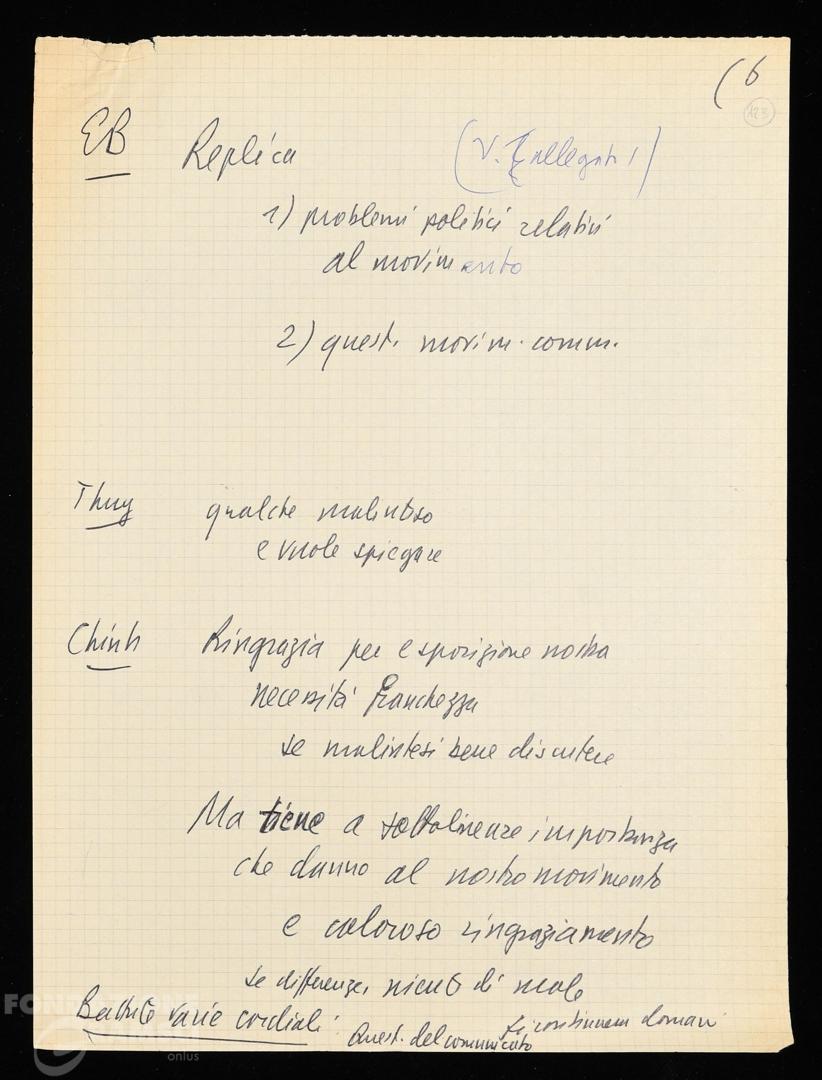 (6
123
EB Replica (V. allegato 1)
1) problemi politici relativi
al movimento
2) quest. movim. comm.
Thuy qualche malinteso
e vuole spiegare
Chinh Ringrazia per esposizione nostra
necessità franchezza
se malintesi bene discutere
Ma tiene a sottolineare importanza
che danno al nostro movimento
e caloroso ringraziamento
se differenze, niente di male
Battute varie cordiali
Quest. del comunicato
si continuerà domani
FOND
onlus